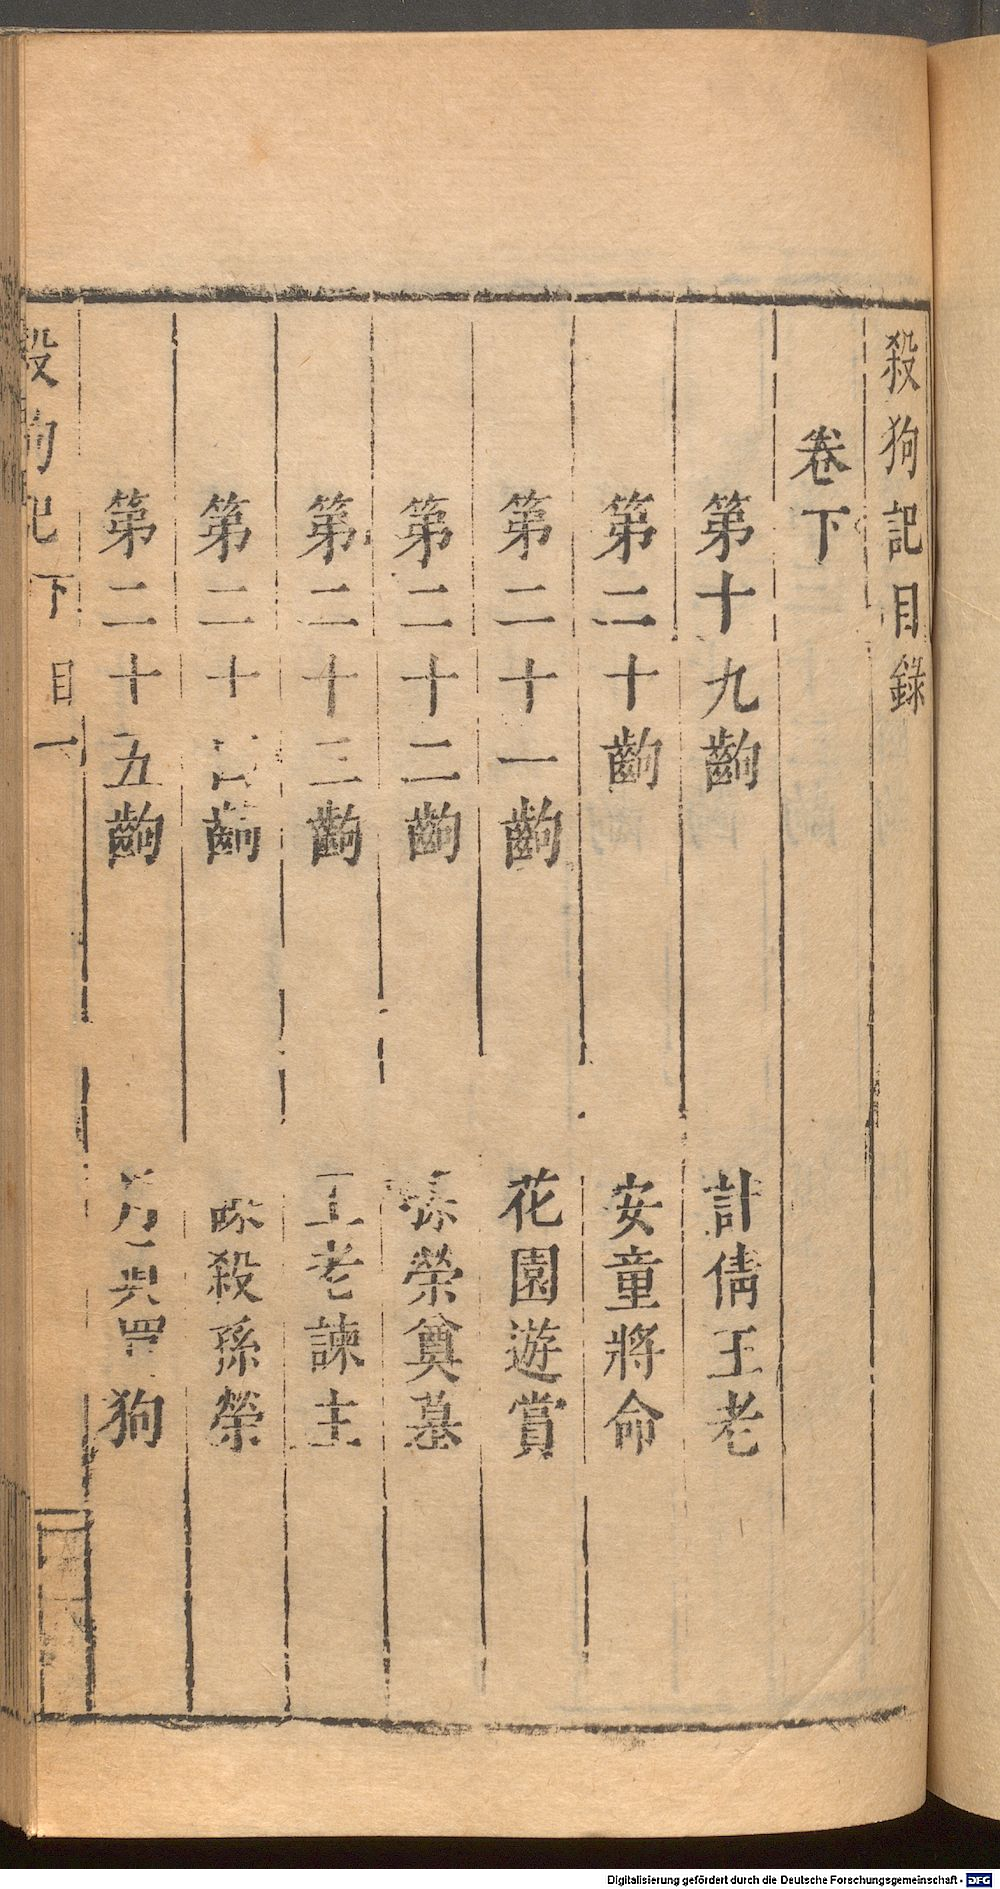 殺狗記目錄
卷下
第十九齣 計倩王老
第二十齣 安童將命
第二十一齣 花園遊賞
第二十二齣 孫榮奠墓
第二十三齣 王老諫主
第二十四齣 謀殺孫榮
第二十五齣 月眞買狗
殺狗記下 目 一
Digitalisierung gefördert durch die Deutsche Forschungsgemeinschaft - DFG